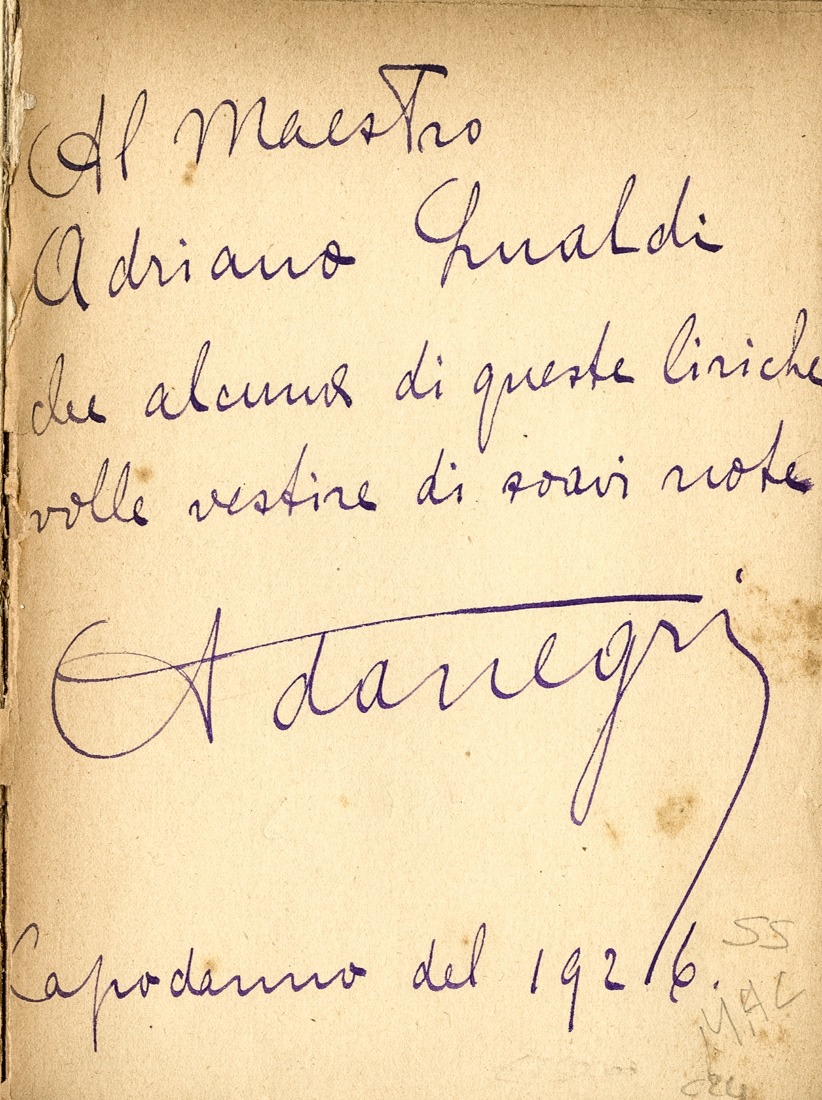 Al Maestro
Adriano Lualdi
che alcuna di queste liriche
volle vestire di soavi note
Adanegri
Capodanno del 1926.
SS
MAL